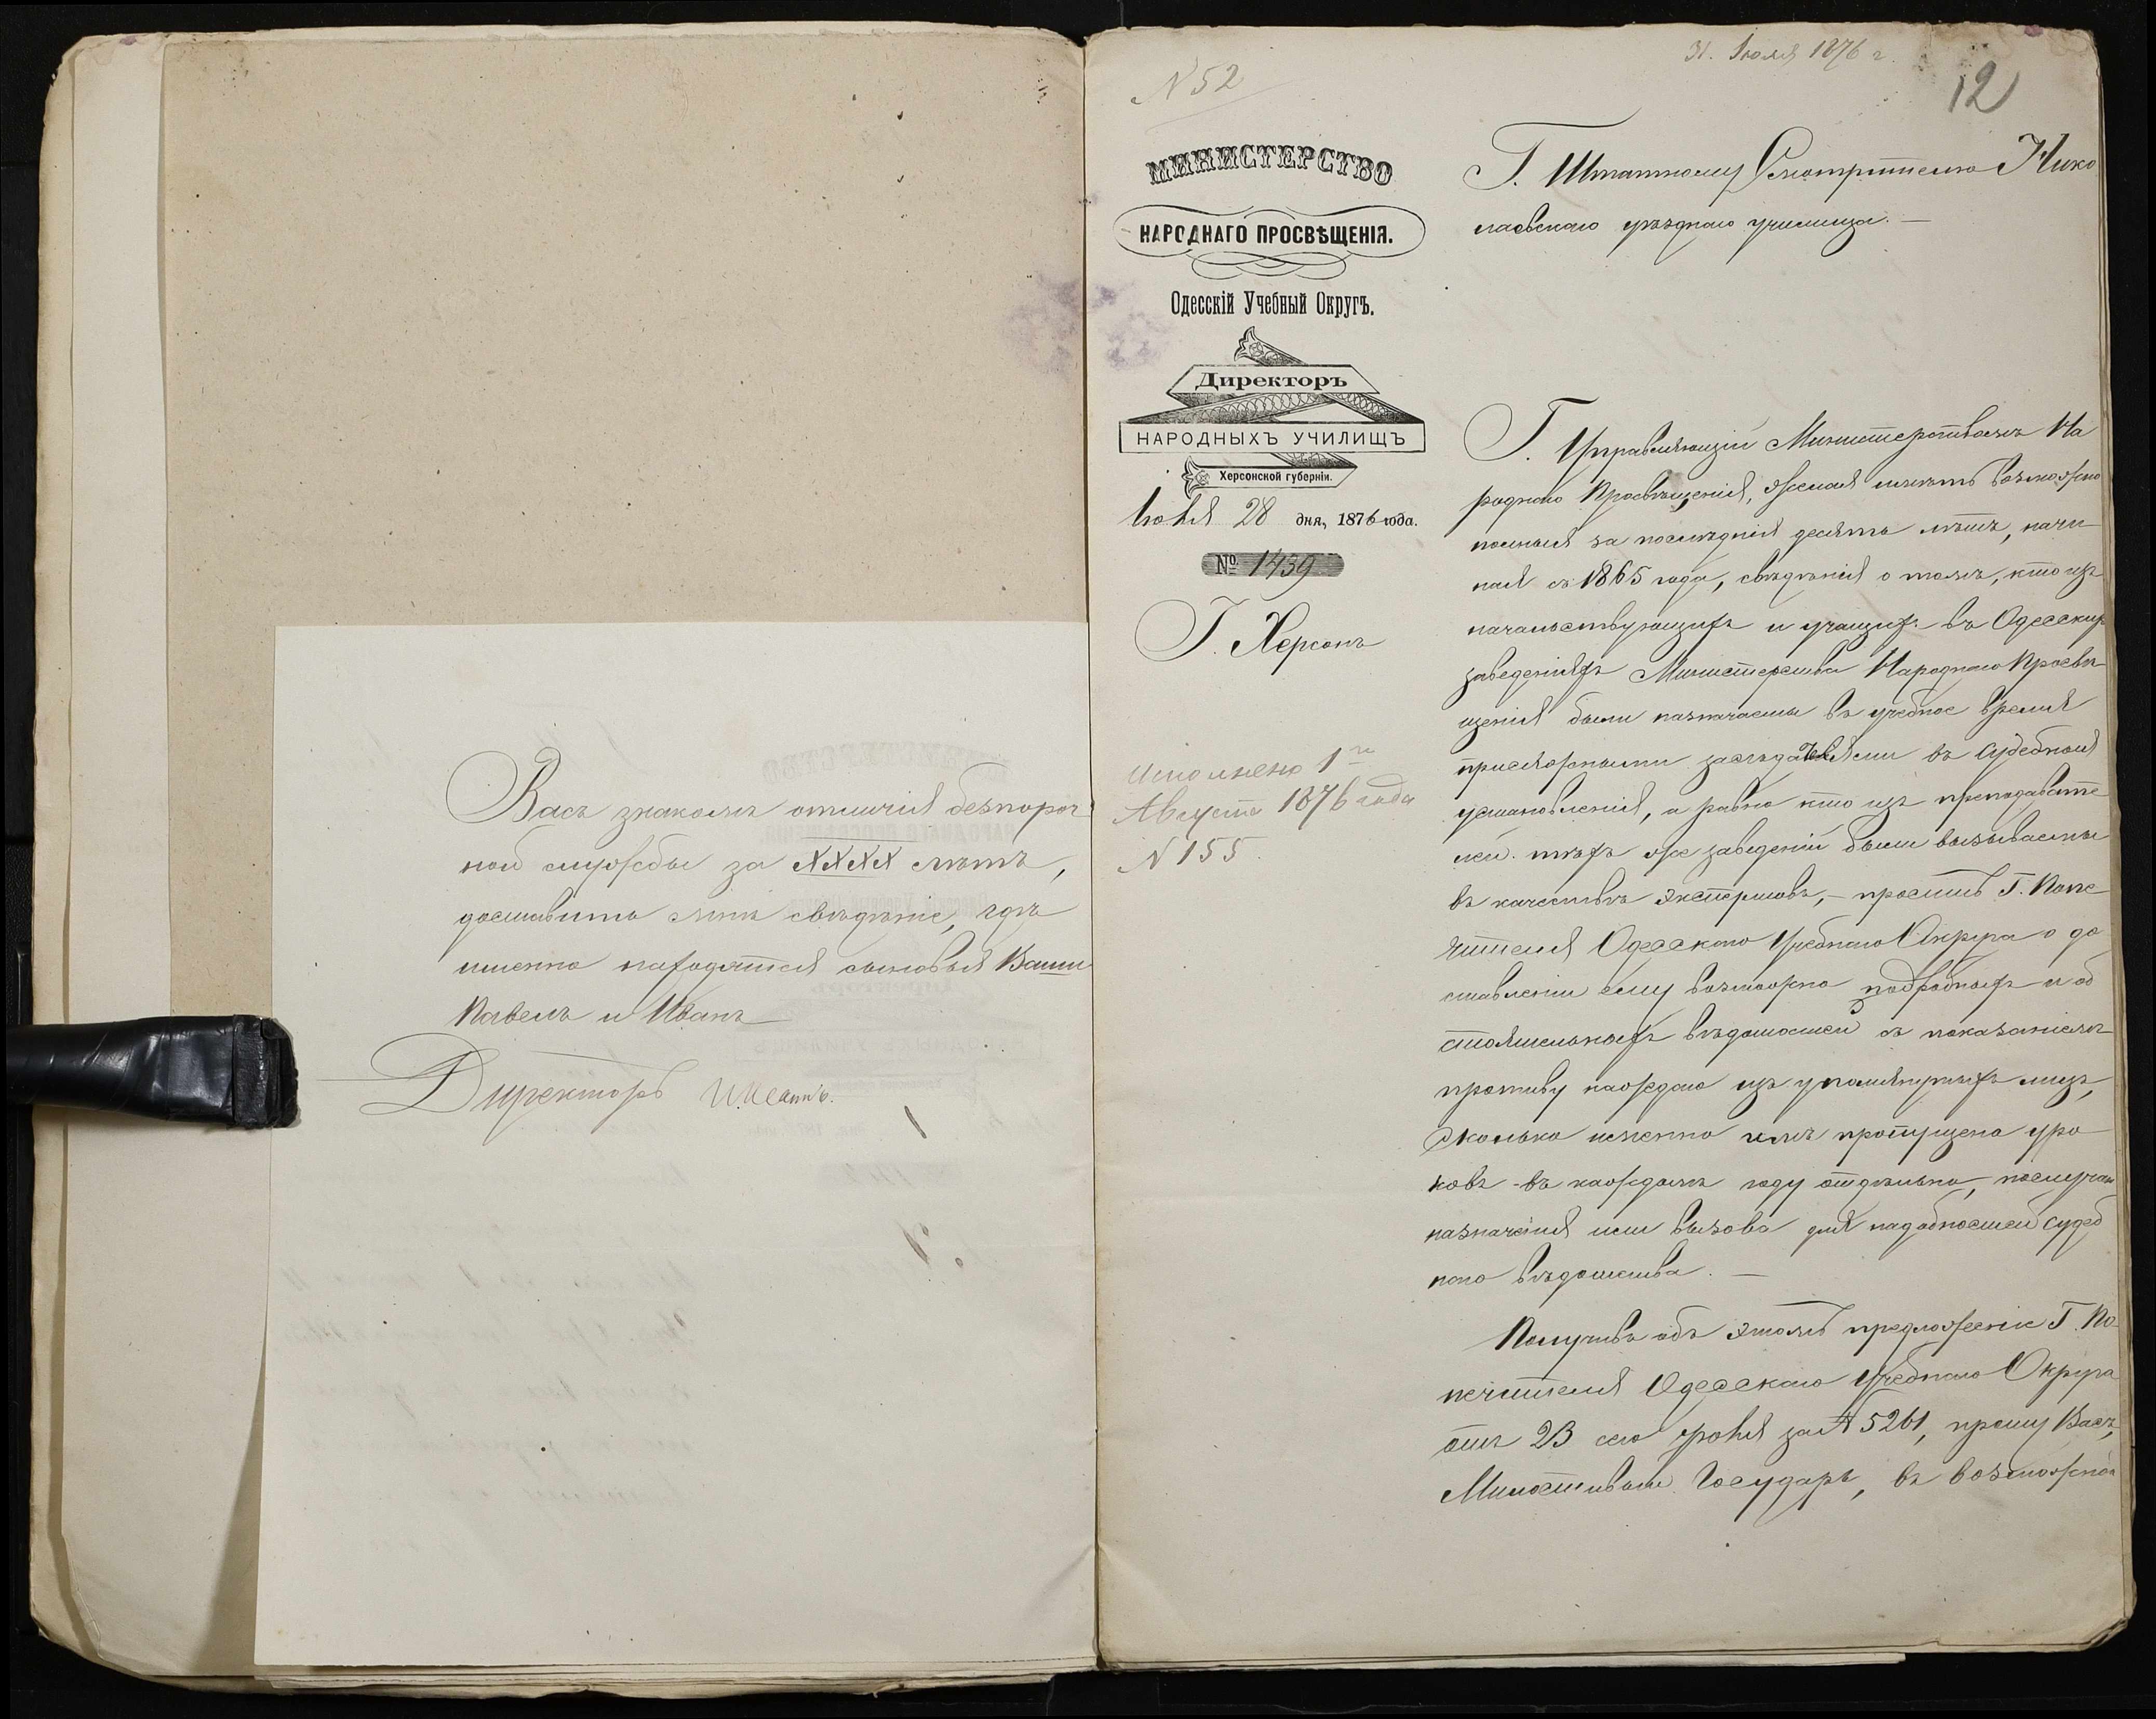 Васъ знакомъ отличія безпороч
ной службы за XXXX лѣтъ,
доставить мнѣ свѣдѣніе, гдѣ
именно находятся сыновья Ваши
Павелъ и Иванъ
Директоръ
31. Іюля 1876 г.
12
N 52
МИНИСТЕРСТВО
НАРОДНАГО ПРОСВѢЩЕНІЯ.
Одесскій Учебный Округъ.
Директоръ
НАРОДНЫХЪ УЧИЛИЩЪ
Херсонской губерніи.
28 дня, 1876 года.
№ 1439
Г. Херсонъ
Исполнено 1го
Августа 1876 года
N 155.
Г. Штатному Смотрителю Нико
лаевскаго уѣзднаго училища. —
Г. Управляющій Министерствомъ На
роднаго Просвѣщенія, желая имѣть возможно
полныя за послѣднія десять лѣтъ, начи
ная съ 1865 года, свѣдѣнія о томъ, кто изъ
начальствующихъ и учащихъ въ Одесскихъ
заведеніяхъ Министерства Народнаго Просвѣ
щенія были назначаемы въ учебное время
присяжными засѣдателями въ судебныя
установленія, а равно кто изъ преподавате
лей тѣхъ же заведеній были вызываемы
въ качествѣ экспертовъ, — проситъ Г. Попе
чителя Одесскаго Учебнаго Округа о до
ставленіи ему возможно подробныхъ и об
стоятельныхъ вѣдомостей съ показаніемъ
противу каждаго изъ упомянутыхъ лицъ,
сколько именно имъ пропущено уро
ковъ въ каждомъ году отдѣльно, по случаю
назначенія или вызова для надобностей судеб
наго вѣдомства. —
Получивъ объ этомъ предложеніе Г. По
печителя Одесскаго Учебнаго Округа
отъ 23 сего за N 5261, прошу Васъ,
Милостивый Государь, въ возможно